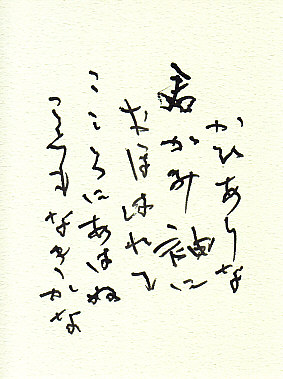 かひありな
君かみ袖に
おほはれて
こころにあはぬ
こともなきかな